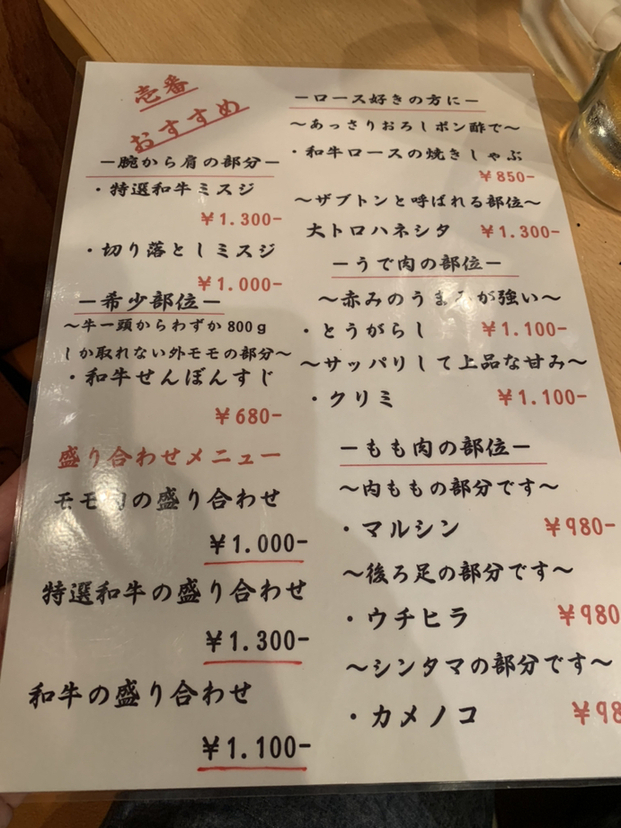 壱番
おすすめ
ー腕から肩の部分ー
・特選和牛ミスジ
￥1.300-
・切り落としミスジ
￥1.000-
ー希少部位ー
～牛一頭からわずか800ｇ
しか取れない外モモの部分～
・和牛せんぼんすじ
￥680-
盛り合わせメニュー
モモ肉の盛り合わせ
￥1.000-
特選和牛の盛り合わせ
￥1.300-
和牛の盛り合わせ
￥1.100-
ーロース好きの方にー
～あっさりおろしポン酢で～
・和牛ロースの焼きしゃぶ
￥850-
～ザブトンと呼ばれる部位～
大トロハネシタ ￥1.300-
ーうで肉の部位ー
～赤みのうまみが強い～
・とうがらし ￥1.100-
～サッパリして上品な甘み～
・クリミ ￥1.100-
ーもも肉の部位ー
～内ももの部分です～
・マルシン ￥980-
～後ろ足の部分です～
・ウチヒラ ￥980
～シンタマの部分です～
・カメノコ ￥98